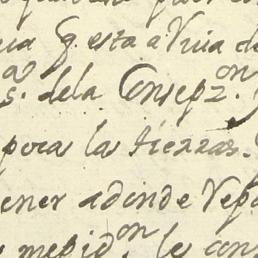 q. esta a Vuia de
s.as dela Consepz.on
poca la tierras.
ener adonde Repa
mepid.on le con